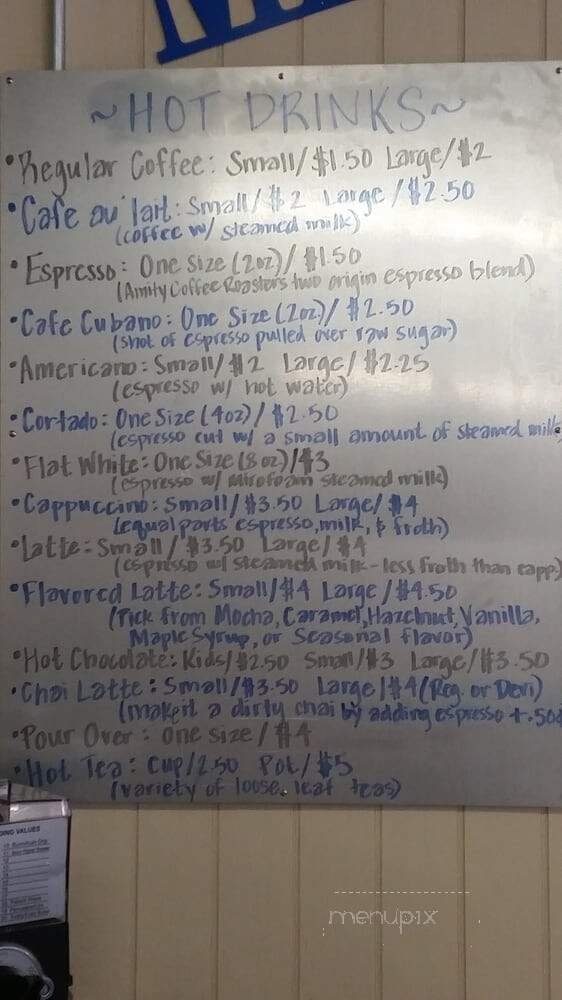 ~HOT DRINKS~
•Regular Coffee: Small/$1.50 Large/$2
•Cafe au lait: Small/$2 Large/$2.50
(coffee w/ steamed milk)
•Espresso: One Size (2oz)/$1.50
(Amity Coffee Roasters two origin espresso blend)
•Cafe Cubano: One Size (2oz)/$2.50
(shot of espresso pulled over raw sugar)
•Americano: Small/$2 Large/$2.25
(espresso w/ hot water)
•Cortado: One Size (4oz)/$2.50
(espresso cut w/ a small amount of steamed milk
•Flat White: One Size (8oz)/$3
(espresso w/ mirofoam steamed milk)
•Cappuccino: Small/$3.50 Large/$4
(equal parts espresso, milk, & froth)
•Latte: Small/$3.50 Large/$4
(espresso w/ steamed milk - less froth than capp.)
•Flavored Latte: Small/$4 Large/$4.50
(Pick from Mocha, Caramel, Hazelnut, Vanilla,
Maple Syrup, or Seasonal flavor)
•Hot Chocolate: Kids/$2.50 Small/$3 Large/$3.50
•Chai Latte: Small/$3.50 Large/$4 (Reg. or Devi)
(make it a dirty chai by adding espresso +.50¢
•Pour Over: one size/$4
•Hot Tea: Cup/2.50 Pot/$5
(variety of loose leaf teas)
VALUES
menupix